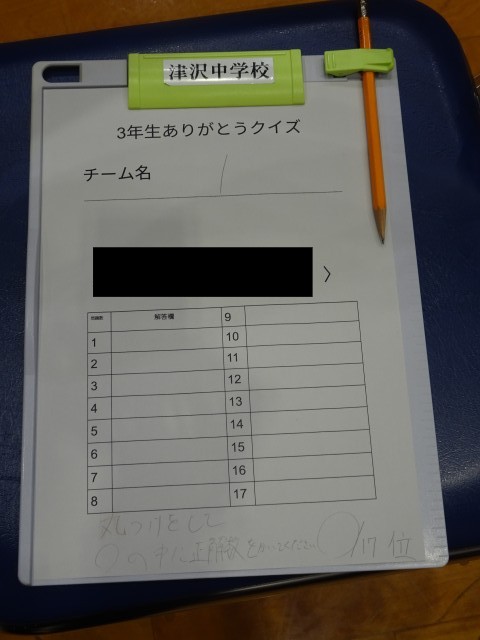 津沢中学校
3年生ありがとうクイズ
チーム名 /
〉
解答欄 9
1 10
2 11
3 12
4 13
5 14
6 15
7 16
8 17
丸つけをして
○の中に正解数をかいてください ○/17 位